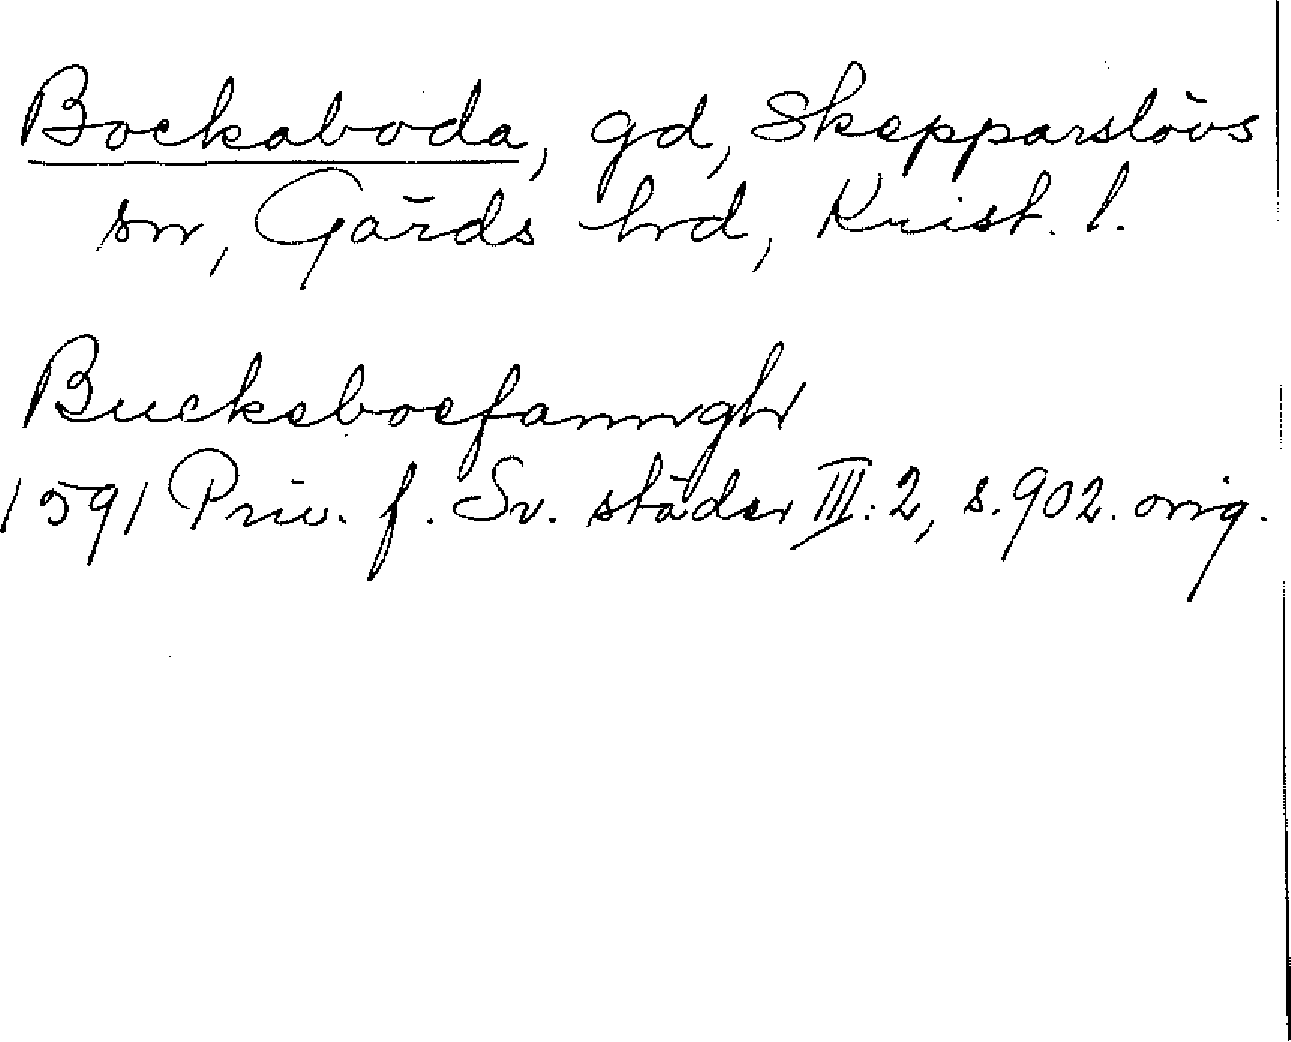 Bockaboda, gd, Skepparslövs
sn, Gärds hrd, Krist. l.
Buckeboefanngh
1591 Priv. f. Sv. städer III:2, s. 902. orig.